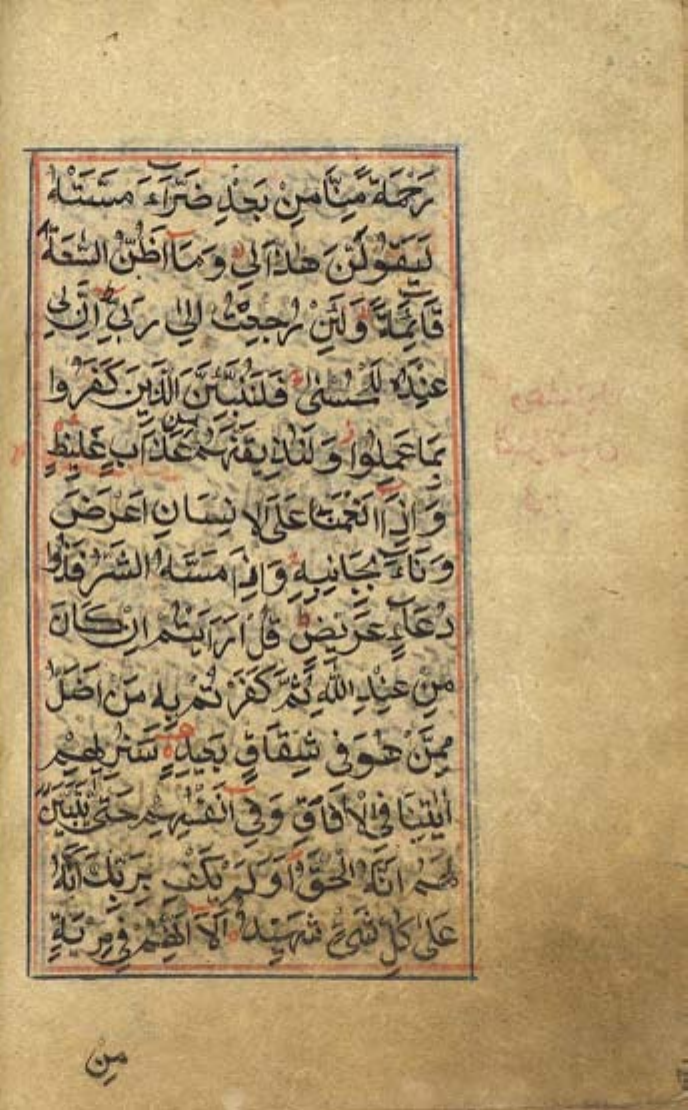 رَحْمَةً مِّنَّا مِنْ بَعْدِ ضَرَّآءَ مَسَّتْهُ
لَيَقُولَنَّ هٰذَا لِي وَمَآ اَظُنُّ السَّعَةَ
قَآئِمَةً وَلَئِنْ رُجِعْتُ اِلٰى رَبِّيٓ اِنَّ لِي
عِنْدَهُ لَلْحُسْنٰى فَلَنُنَبِّئَنَّ الَّذِينَ كَفَرُوا
بِمَا عَمِلُوا وَلَنُذِيقَنَّهُمْ مِنْ عَذَابٍ غَلِيظٍ
وَاِذَآ اَنْعَمْنَا عَلَى الْاِنْسَانِ اَعْرَضَ
وَنَاٰ بِجَانِبِهِ وَاِذَا مَسَّهُ الشَّرُّ فَذُو
دُعَآءٍ عَرِيضٍ قُلْ اَرَاَيْتُمْ اِنْ كَانَ
مِنْ عِنْدِ اللّٰهِ ثُمَّ كَفَرْتُمْ بِهِ مَنْ اَضَلُّ
مِمَّنْ هُوَ فِي شِقَاقٍ بَعِيدٍ سَنُرِيهِمْ
اٰيٰتِنَا فِي الْاٰفَاقِ وَفِيٓ اَنْفُسِهِمْ حَتّٰى يَتَبَيَّنَ
لَهُمْ اَنَّهُ الْحَقُّ اَوَلَمْ يَكْفِ بِرَبِّكَ اَنَّهُ
عَلٰى كُلِّ شَيْءٍ شَهِيدٌ اَلَآ اِنَّهُمْ فِي مِرْيَةٍ
مِنْ